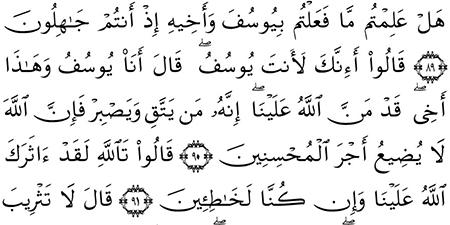 هَلْ عَلِمْتُم مَّا فَعَلْتُم بِيُوسُفَ وَأَخِيهِ إِذْ أَنتُمْ جَـٰهِلُونَ
﴿٨٩﴾ قَالُوٓا۟ أَءِنَّكَ لَأَنتَ يُوسُفُ ۖ قَالَ أَنَا۠ يُوسُفُ وَهَـٰذَآ
أَخِى ۖ قَدْ مَنَّ ٱللَّهُ عَلَيْنَآ ۖ إِنَّهُۥ مَن يَتَّقِ وَيَصْبِرْ فَإِنَّ ٱللَّهَ
لَا يُضِيعُ أَجْرَ ٱلْمُحْسِنِينَ ﴿٩٠﴾ قَالُوا۟ تَٱللَّهِ لَقَدْ ءَاثَرَكَ
ٱللَّهُ عَلَيْنَا وَإِن كُنَّا لَخَـٰطِـِٔينَ ﴿٩١﴾ قَالَ لَا تَثْرِيبَ